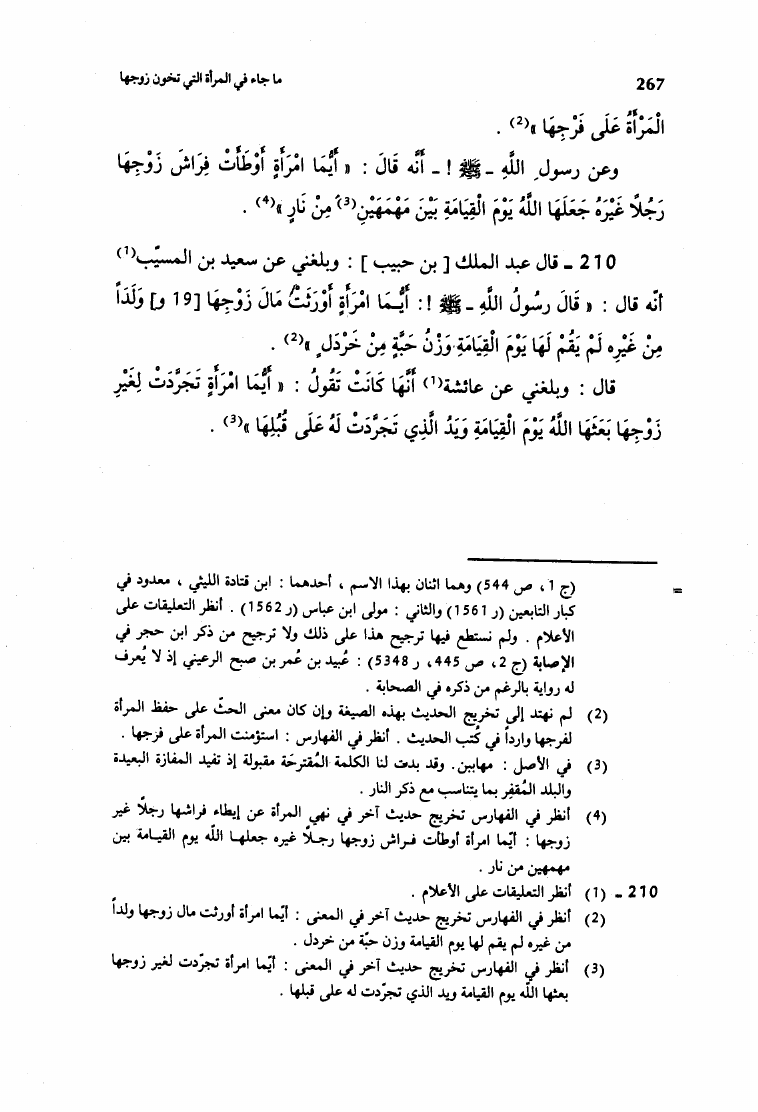 267
ما جاء في المرأة التي تخون زوجها
الْمَرْأَةُ عَلَى فَرْجِهَا »(2) .
وعن رسول اللَّهِ - ﷺ ! - أَنَّه قَالَ : « أَيُّمَا امْرَأَةٍ أَوْطَأَتْ فِرَاشَ زَوْجِهَا
رَجُلاً غَيْرَهُ جَعَلَهَا اللَّهُ يَوْمَ الْقِيَامَةِ بَيْنَ مَهْمَهَيْنِ(3) مِنْ نَارٍ »(4) .
210 ـ قال عبد الملك [ بن حبيب ] : وبلغني عن سعيد بن المسيّب(1)
أنّه قال : « قَالَ رسُولُ اللَّهِ - ﷺ !: أَيُّمَا امْرَأَةٍ أَوْرَثَتْ مَالَ زَوْجِهَا [19 و] وَلَدَاً
مِنْ غَيْرِهِ لَمْ يَقُمْ لَهَا يَوْمَ الْقِيَامَةِ وَزْنُ حَبَّةٍ مِنْ خَرْدَلٍ »(2) .
قال : وبلغني عن عائشة(1) أَنَّهَا كَانَتْ تَقُولُ : « أَيُّمَا امْرَأَةٍ تَجَرَّدَتْ لِغَيْرِ
زَوْجِهَا بَعَثَهَا اللَّهُ يَوْمَ الْقِيَامَةِ وَيَدُ الَّذِي تَجَرَّدَتْ لَهُ عَلَى قُبُلِهَا »(3) .
= (ج 1، ص 544) وهما اثنان بهذا الاسم ، أحدهما : ابن قتادة الليثي ، معدود في
كبار التابعين (ر 1561) والثاني : مولى ابن عباس (ر 1562) . أنظر التعليقات على
الأعلام . ولم نستطع فيها ترجيح هذا على ذلك ولا ترجيح من ذكر ابن حجر في
الإصابة (ج 2، ص 445، ر 5348) : عُبيد بن عُمر بن صبح الرعيني إذ لا يُعرف
له رواية بالرغم من ذكره في الصحابة .
(2) لم نهتد إلى تخريج الحديث بهذه الصيغة وإن كان معنى الحثّ على حفظ المرأة
لفرجها وارداً في كُتب الحديث . أنظر في الفهارس : استؤمنت المرأة على فرجها .
(3) في الأصل : مهابين. وقد بدت لنا الكلمة المُقترحَة مقبولة إذ تفيد المفازة البعيدة
والبلد المُقفِر بما يتناسب مع ذكر النار .
(4) أنظر في الفهارس تخريج حديث آخر في نهي المرأة عن إيطاء فراشها رجلاً غير
زوجها : أيّما امرأة أوطأت فراش زوجها رجلاً غيره جعلها اللّه يوم القيامة بين
مهمهين من نار .
210 ـ (1) أنظر التعليقات على الأعلام .
(2) أنظر في الفهارس تخريج حديث آخر في المعنى : أيّما امرأة أورثت مال زوجها ولداً
من غيره لم يقم لها يوم القيامة وزن حبّة من خردل .
(3) أنظر في الفهارس تخريج حديث آخر في المعنى : أيّما امرأة تجرّدت لغير زوجها
بعثها اللّه يوم القيامة ويد الذي تجرّدت له على قبلها .